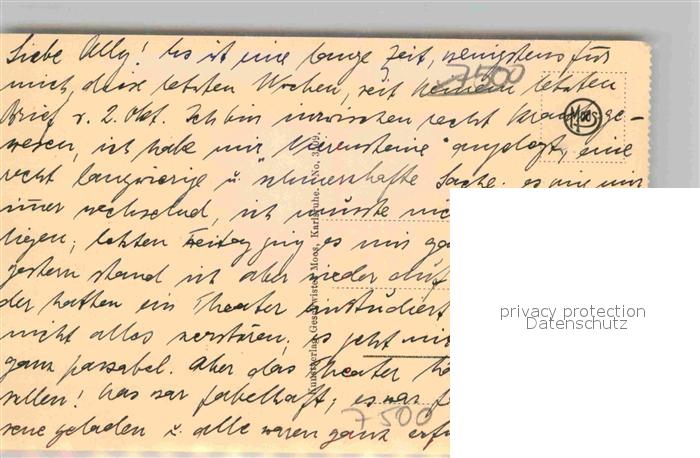 Liebe Olly! Es ist eine lange Zeit, wenigstens für
mich, diese letzten Wochen, seit meinem letzten
7500
Brief v. 2. Okt. Ich bin inzwischen recht krank ge-
wesen, ich habe mir "Nierensteine" angelegt, eine
recht langwierige u. schmerzhafte Sache; es ging mir
immer wechselnd, ich musste
liegen; letzten Freitag ging es mir
gestern stand ich aber wieder auf
der hatten ein Theater einstudiert
nicht alles zerstören; es geht mir
ganz passabel. Aber das Theater
sollen! Das war fabelhaft; es war
geladen u. alle waren ganz
Kunstverlag Geschwister Moos, Karlsruhe. No. 3109.
7500
privacy protection
Datenschutz